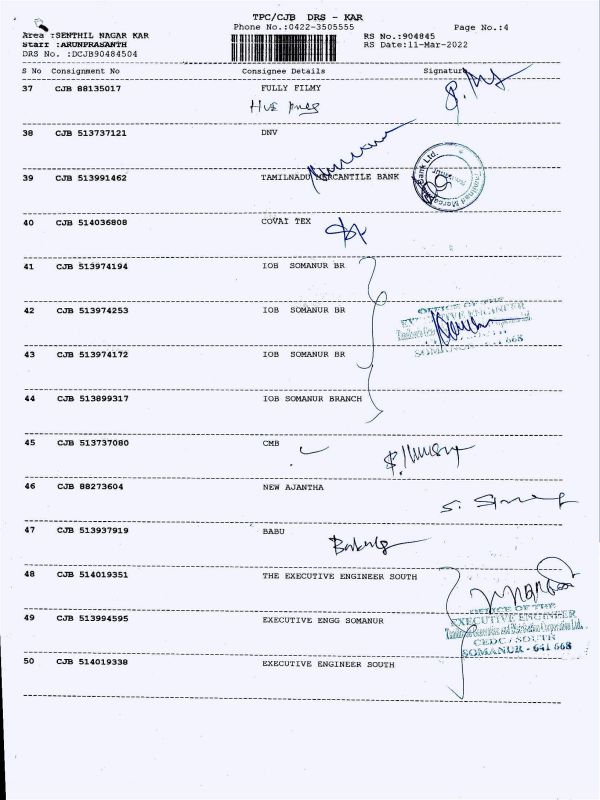 TPC/CJB DRS - KAR
Phone No.:0422-3505555 Page No.:4
Area :SENTHIL NAGAR KAR RS No.:904845
Staff :ARUNPRASANTH RS Date:11-Mar-2022
DRS No. :DCJB90484504
S No Consignment No Consignee Details Signature
37 CJB 88135017 FULLY FILMY
38 CJB 513737121 DNV
39 CJB 513991462 TAMILNADU MERCANTILE BANK
Bank Ltd.
Tamilnad Mercantile
40 CJB 514036808 COVAI TEX
41 CJB 513974194 IOB SOMANUR BR
42 CJB 513974253 IOB SOMANUR BR
OFFICE OF THE
EXECUTIVE ENGINEER
43 CJB 513974172 IOB SOMANUR BR
SOMANUR - 641 668
44 CJB 513899317 IOB SOMANUR BRANCH
45 CJB 513737080 CMB
46 CJB 88273604 NEW AJANTHA
47 CJB 513937919 BABU
48 CJB 514019351 THE EXECUTIVE ENGINEER SOUTH
OFFICE OF THE
49 CJB 513994595 EXECUTIVE ENGG SOMANUR
EXECUTIVE ENGINEER
Tamilnadu Generation and Distribution Corporation Ltd.
CEDC / SOUTH
SOMANUR - 641 668
50 CJB 514019338 EXECUTIVE ENGINEER SOUTH